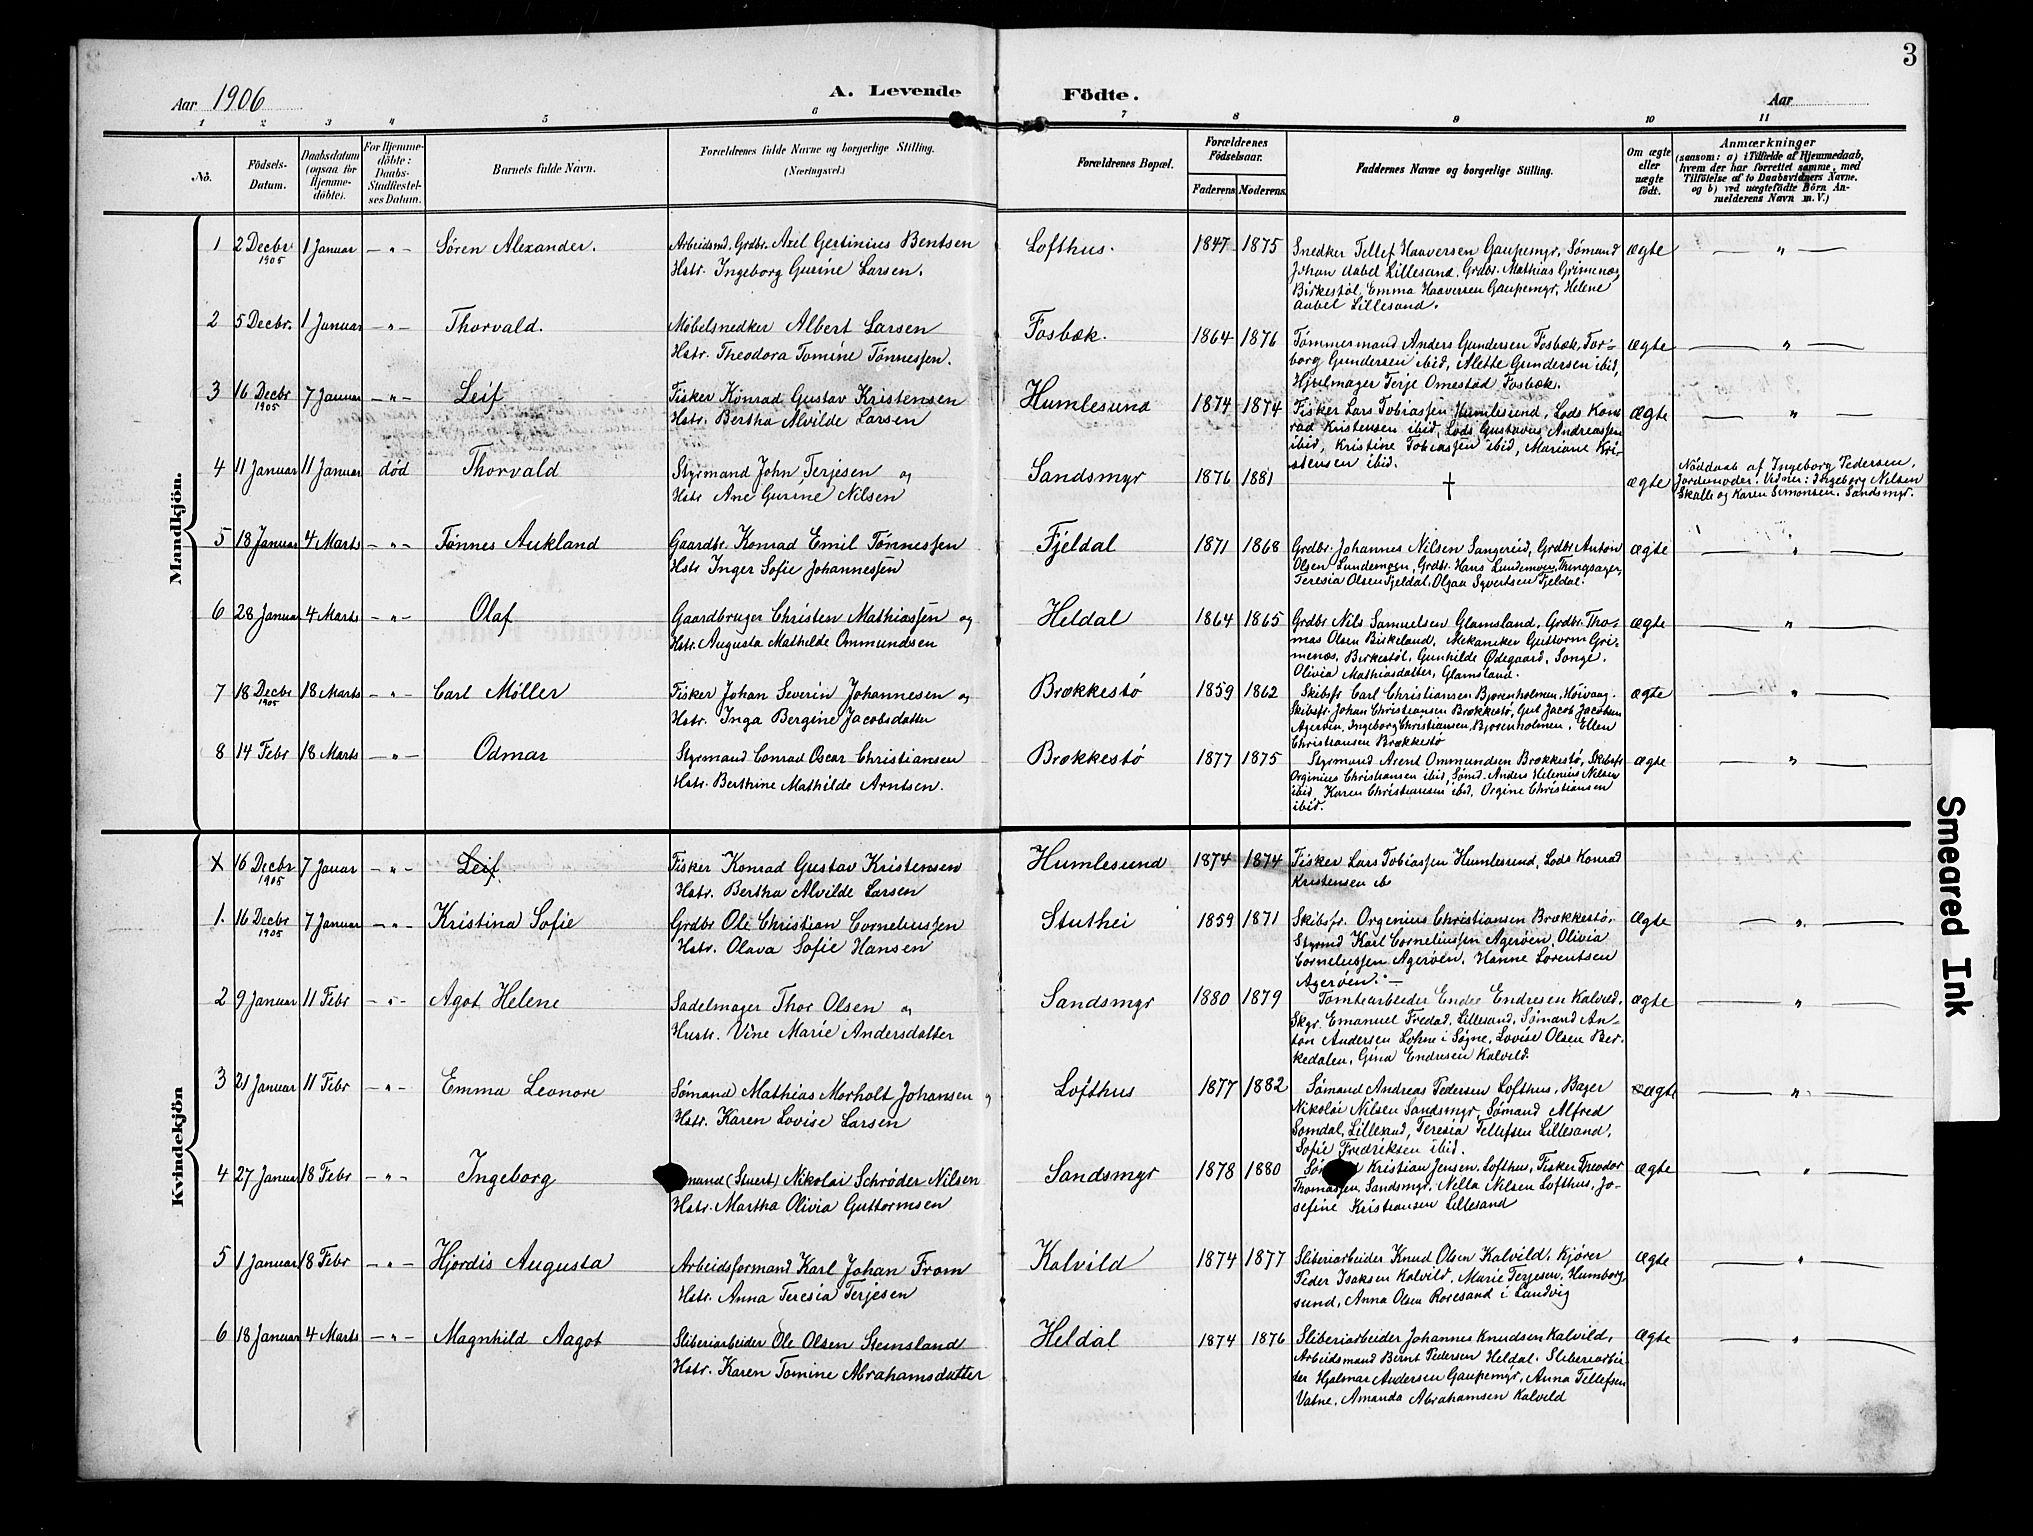 3
Aar 1906
A. Levende Födte.
Aar
1 2 3 4 5 6 7 8 9 10 11
No.
Födsels-
Datum.
Daabsdatum
(ogsaa för
Hjemme-
döbte).
For Hjemme-
döbte:
Daabs-
Stadfæstel-
ses Datum.
Barnets fulde Navn.
Forældrenes fulde Navne og borgerlige Stilling.
(Næringsvei.)
Forældrenes Bopæl.
Forældrenes
Födselsaar.
Faderens.
Moderens.
Faddernes Navne og borgerlige Stilling.
Om ægte
eller
uægte
födt.
Anmærkninger
(saasom: a) i Tilfælde af Hjemmedaab,
hvem der har forrettet samme, med
Tilföielse af to Daabsvidners Navne.
og b) ved uægtefödte Börn An-
melderens Navn m. V.)
Mandkjön.
1 2 Decbr 1905 1 Januar — " — Søren Alexander.
Arbeidsmd. Grdbr. Axel Gertinius Bentsen
Hstr. Ingeborg Gurine Larsen.
Lofthus. 1847 1875
Snedker Tellef Haaversen Gaupemyr, Sømand
Johan Aabel Lillesand, Grdbr. Mathias Grimenæs
Birkestøl, Emma Haaversen Gaupemyr, Helene
Aabel Lillesand.
ægte — " —
2 5 Decbr. 1 Januar — " — Thorvald.
Møbelsnedker Albert Larsen
Hstr. Theodora Tomine Tønnessen.
Fosbæk. 1864 1876
Tømmermand Anders Gundersen Fosbæk, Tor-
borg Gundersen ibid, Alette Gundersen ibid,
Hjulmager Terje Omestad Fosbæk.
ægte — " —
3 16 Decbr 1905 7 Januar — " — Leif
Fisker Konrad Gustav Kristensen
Hstr. Bertha Alvilde Larsen
Humlesund 1874 1874
Fisker Lars Tobiassen Humlesund, Lods Kon-
rad Kristensen ibid, Lods Gustavus Andreassen
ibid, Kristine Tobiassen ibid, Mariane Kri-
stensen ibid.
ægte — " —
4 11 Januar 11 Januar død Thorvald
Styrmand John Terjesen og
Hstr Ane Gurine Nilsen
Sandsmyr 1876 1881
†
ægte
Nöddaab af Ingeborg Pedersen,
Jordemoder. Vidner: Ingeborg Nilsen
Skalle og Karen Simonsen, Sandsmyr.
5 18 Januar 4 Marts — " — Tønnes Aukland
Gaardbr. Konrad Emil Tønnessen
Hstr Inger Sofie Johannessen
Fjeldal 1871 1868
Grdbr. Johannes Nilsen Sangereid, Grdbr Anton
Olsen Lundemoen, Grdbr. Hans Lundemoen, Thingsager,
Teresia Olsen Fjeldal, Olgaa Syvertsen Fjeldal.
ægte — " —
6 28 Januar 4 Marts — " — Olaf
Gaardbruger Christen Mathiassen og
Hstr. Augusta Mathilde Ommundsen
Heldal 1864 1865
Grdbr Nils Samuelsen Glamsland, Grdbr. Tho-
mas Olsen Birkeland, Mekaniker Guttorm Gri-
menæs, Birkestøl, Gunhilde Ødegaard, Songe,
Olivia Mathiasdatter, Glamsland.
ægte — " —
7 18 Decbr 1905 18 Marts — " — Carl Møller
Fisker Johan Severin Johannesen og
Hstr. Inga Bergine Jacobsdatter
Brækkestø 1859 1862
Skibsfr Carl Christiansen Bjorenholmen, Høivaag.
Skibsfr. Johan Christiansen Brækkestø, Gut Jacob Jacobsen
Agerøen, Ingeborg Christiansen, Bjorenholmen, Ellen
Christiansen Brækkestø
ægte — " —
8 14 Febr 18 Marts — " — Odmar
Styrmand Conrad Oscar Christiansen
Hstr. Berthine Mathilde Arntsen.
Brækkestø 1877 1875
Styrmand Arent Ommundsen Brækkestø, Skibsfr
Orginius Christiansen ibid, Sømd. Anders Helenius Nilsen
ibid, Karen Christiansen ibid, Orgine Christiansen
ibid.
ægte — " —
Kvindekjön
X 16 Decbr 1905 7 Januar — " — Leif
Fisker Konrad Gustav Kristensen
Hstr. Bertha Alvilde Larsen
Humlesund 1874 1874
Fisker Lars Tobiassen Humlesund, Lods Konrad
Kristensen ib
1. 16 Decbr 1905 7 Januar — " — Kristina Sofie
Grdbr Ole Christian Corneliussen
Hstr. Olava Sofie Hansen
Stuthei 1859 1871
Skibsfr. Orgenius Christiansen Brækkestø,
Styrmd Karl Corneliussen Agerøen, Olivia
Corneliussen Agerøen, Hanne Lorentsen
Agerøen. —
ægte — " —
2 9 Januar 11 Febr — " — Agot Helene
Sadelmager Thor Olsen og
Hustr. Vine Marie Andersdatter
Sandsmyr 1880 1879
Tomtearbeider Endre Endresen Kalvild,
Skgr. Emanuel Fredad, Lillesand, Sømand An-
ton Andersen Lohne i Søgne, Lovise Olsen Ber-
kedalen, Gina Endresen Kalvild.
ægte — " —
3 21 Januar 11 Febr — " — Emma Leonore
Sømand Mathias Morholt Johansen og
Hstr. Karen Lovise Larsen
Lofthus 1877 1882
Sømand Andreas Pedersen Lofthus, Bager
Nikolai Nilsen Sandsmyr, Sømand Alfred
Somdal, Lillesand, Teresia Tellefsen Lillesand,
Sofie Fredriksen ibid.
ægte — " —
4 27 Januar 18 Febr — " — Ingeborg
mand (Stuert) Nikolai Schrøder Nilsen
Hstr. Martha Olivia Guttormsen
Sandsmyr 1878 1880
Kristian Jensen, Lofthus, Fisker Theodor
Thomassen, Sandsmyr, Nella Nilsen Lofthus, Jo-
sefine Kristiansen Lillesand
ægte — " —
5 1 Januar 18 Febr — " — Hjordis Augusta
Arbeidsformand Karl Johan From
Hstr. Anna Teresia Terjesen
Kalvild 1874 1877
Sliberiarbeider Knud Olsen Kalvild, Kjører
Peder Isaksen Kalvild, Marie Terjesen, Humborg
sund, Anna Olsen Roresand i Landvig
ægte — " —
6 18 Januar 4 Marts — " — Magnhild Aagot
Sliberiarbeider Ole Olsen Stemsland
Hstr. Karen Tomine Abrahamsdatter
Heldal 1874 1876
Sliberiarbeider Johannes Knudsen Kalvild,
Arbeidsmand Bernt Pedersen Heldal, Sliberiarbei-
der Hjalmar Andersen Gaupemyr, Anna Tellefsen
Vatne, Amanda Abrahamsen Kalvild
ægte — " —
Smeared Ink